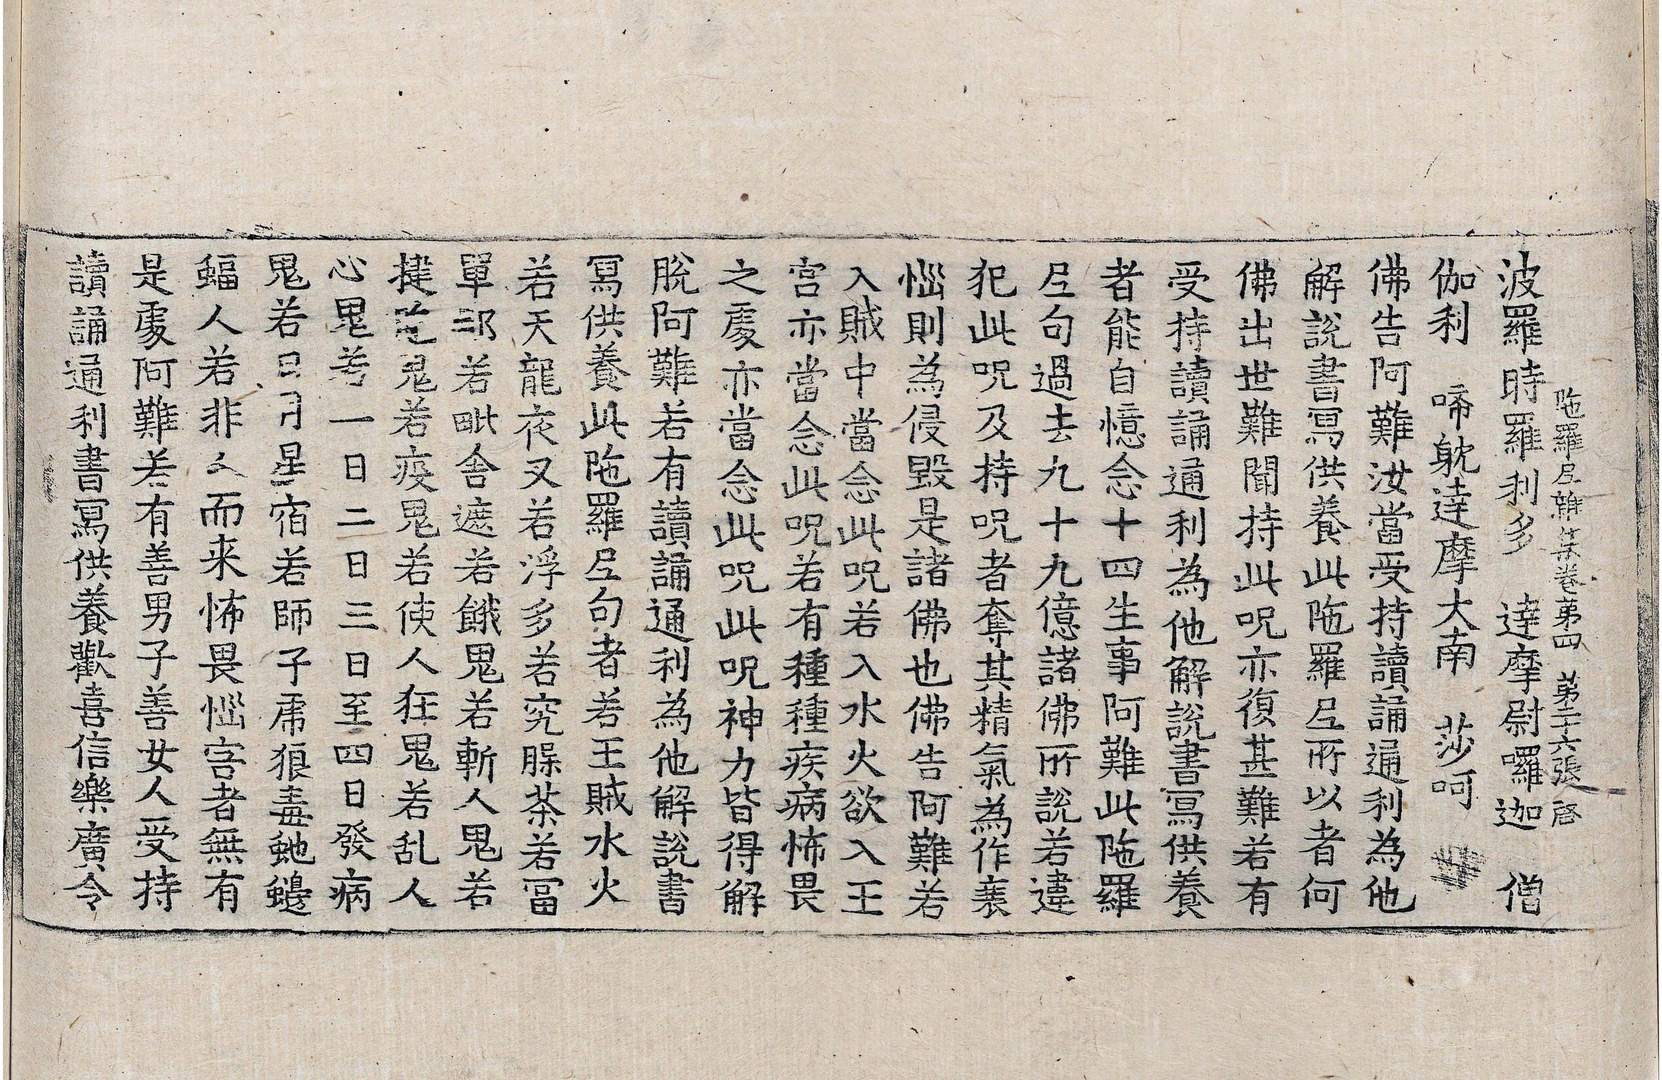 陁羅尼雜集卷第四 第二十六張 啓
波羅時羅利多 達摩尉囉迦 僧
伽利 啼躭達摩大南 莎呵
佛告阿難汝當受持讀誦通利為他
解說書寫供養此陁羅尼所以者何
佛出世難聞持此呪亦復甚難若有
受持讀誦通利為他解說書寫供養
者能自憶念十四生事阿難此陁羅
尼句過去九十九億諸佛所說若違
犯此呪及持呪者奪其精氣為作衰
惱則為侵毀是諸佛也佛告阿難若
入賊中當念此呪若入水火欲入王
宮亦當念此呪若有種種疾病怖畏
之處亦當念此呪此呪神力皆得解
脫阿難若有讀誦通利為他解說書
寫供養此陁羅尼句者若王賊水火
若天龍夜叉若浮多若究腬茶若冨
單那若毗舍遮若餓鬼若斬人鬼若
揵陁鬼若疫鬼若使人狂鬼若乱人
心鬼若一日二日三日至四日發病
鬼若日月星宿若師子虎狼毒虵蠮
蝠人若非人而来怖畏惱害者無有
是處阿難若有善男子善女人受持
讀誦通利書寫供養歡喜信樂廣令